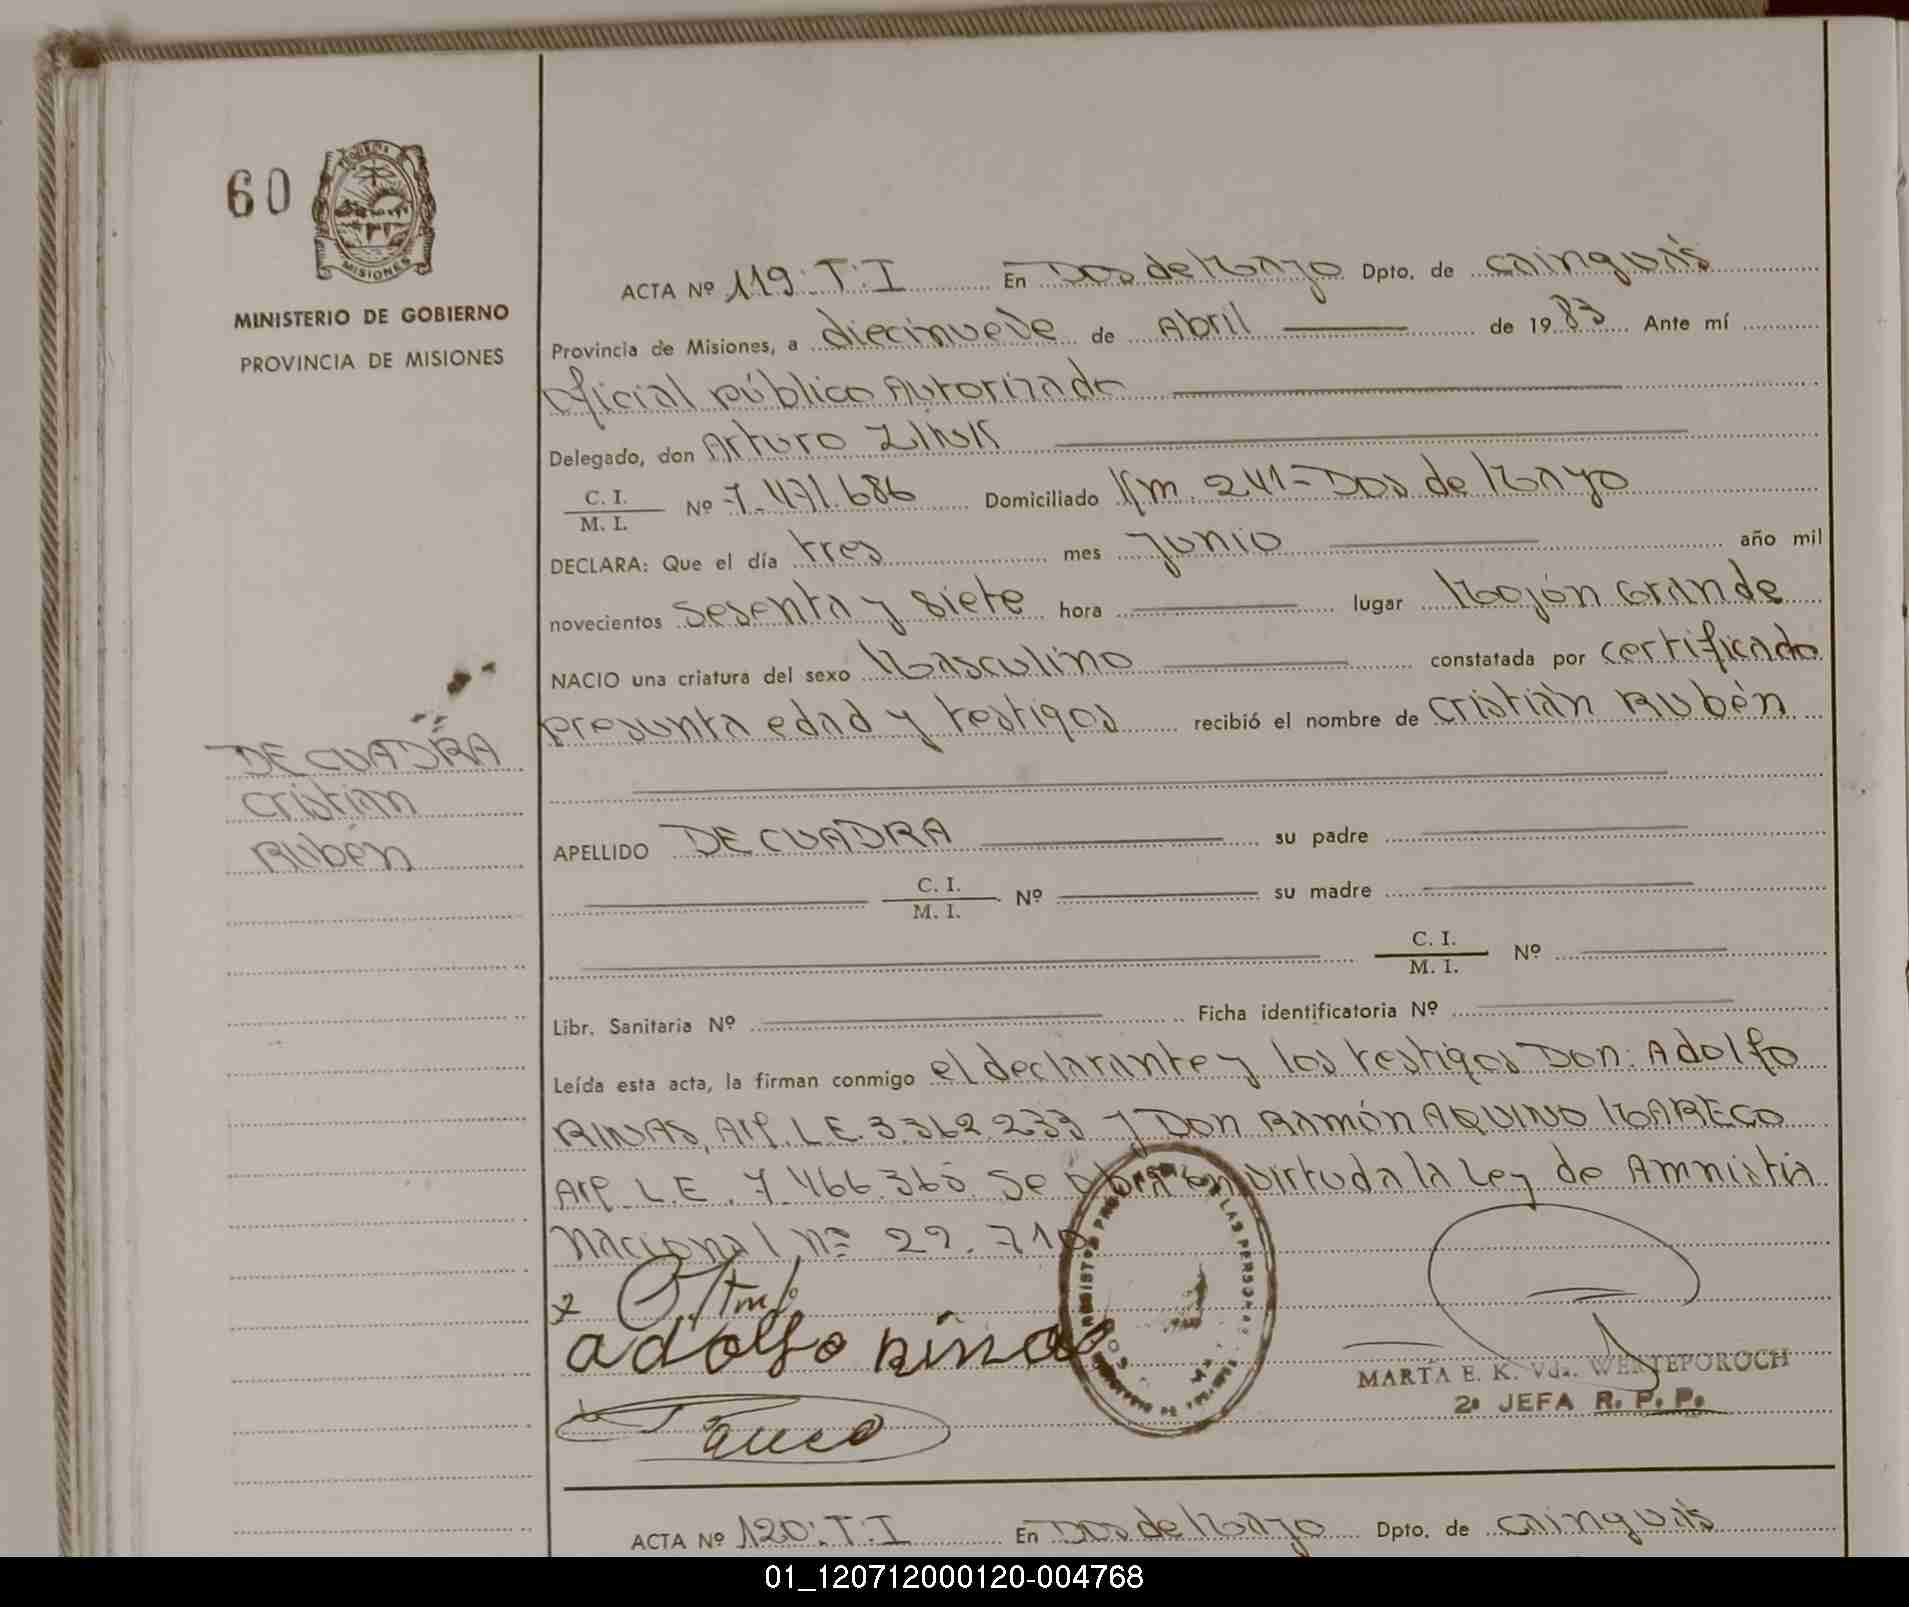 60
MISIONES
MINISTERIO DE GOBIERNO
PROVINCIA DE MISIONES
ACTA Nº 119. T. I En Dos de Mayo Dpto. de Cainguás
Provincia de Misiones, a diecinueve de Abril de 1983 Ante mí
Oficial público Autorizado
Delegado, don Arturo
C. I.
M. I. Nº 7.471.686 Domiciliado Km. 241 - Dos de Mayo
DECLARA: Que el día tres mes Junio año mil
novecientos sesenta y siete hora lugar Mojón Grande
NACIO una criatura del sexo Masculino constatada por certificado
presunta edad y testigos recibió el nombre de Cristian Rubén
DE CUADRA
Cristian
Rubén
APELLIDO DE CUADRA su padre
C. I.
M. I. Nº su madre
C. I.
M. I. Nº
Libr. Sanitaria Nº Ficha identificatoria Nº
Leída esta acta, la firman conmigo el declarante y los testigos Don: Adolfo
RINAS, Arg. L.E. 3.362.233 y Don RAMÓN AQUINO MARECO
Arg. L.E. 7.466.365. Se labra en virtud a la Ley de Amnistia
Nacional Nº 22.710
adolfo Rinas
MARTA E. K. Vda. WESTEPOROCH
2ª JEFA R. P. P.
ACTA Nº 120. T. I En Dos de Mayo Dpto. de Cainguás
01_120712000120-004768